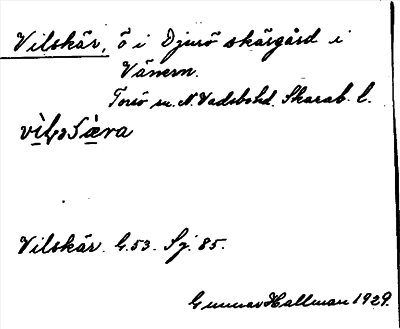 Vilskär, ö i Djurö skärgård i
Vänern.
Torsö sn. N. Vadsbohd. Skarab. l.
Vilskär. G. 53. Sj. 85.
Gunnar Hallman 1929.